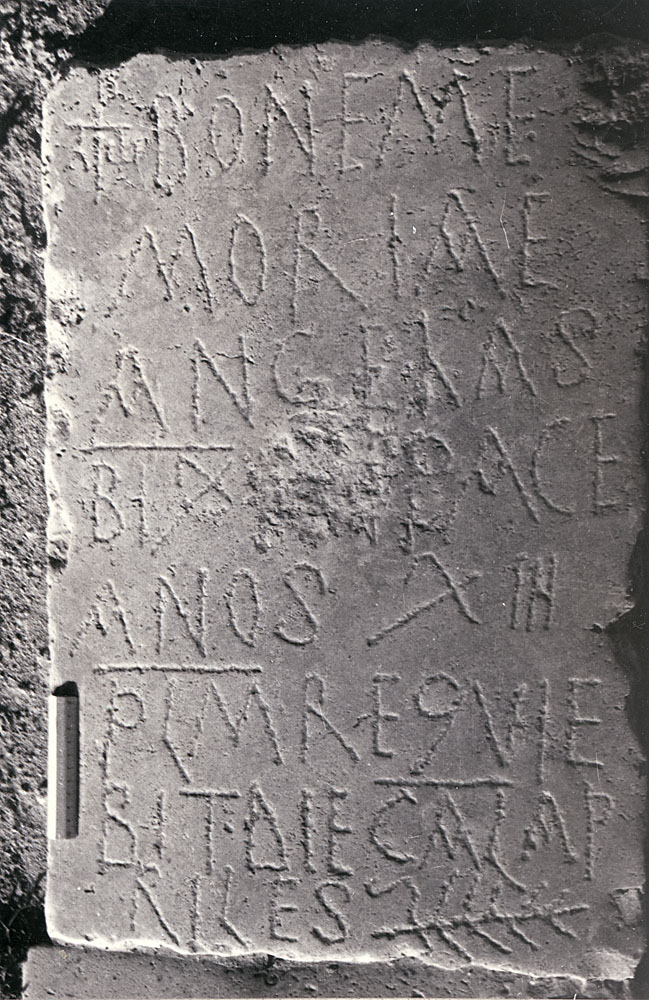 BONEME
MORIAE
BIX PACE
ANOS X III
PLM REQVIE
BIT DIE CAL AP
RILES